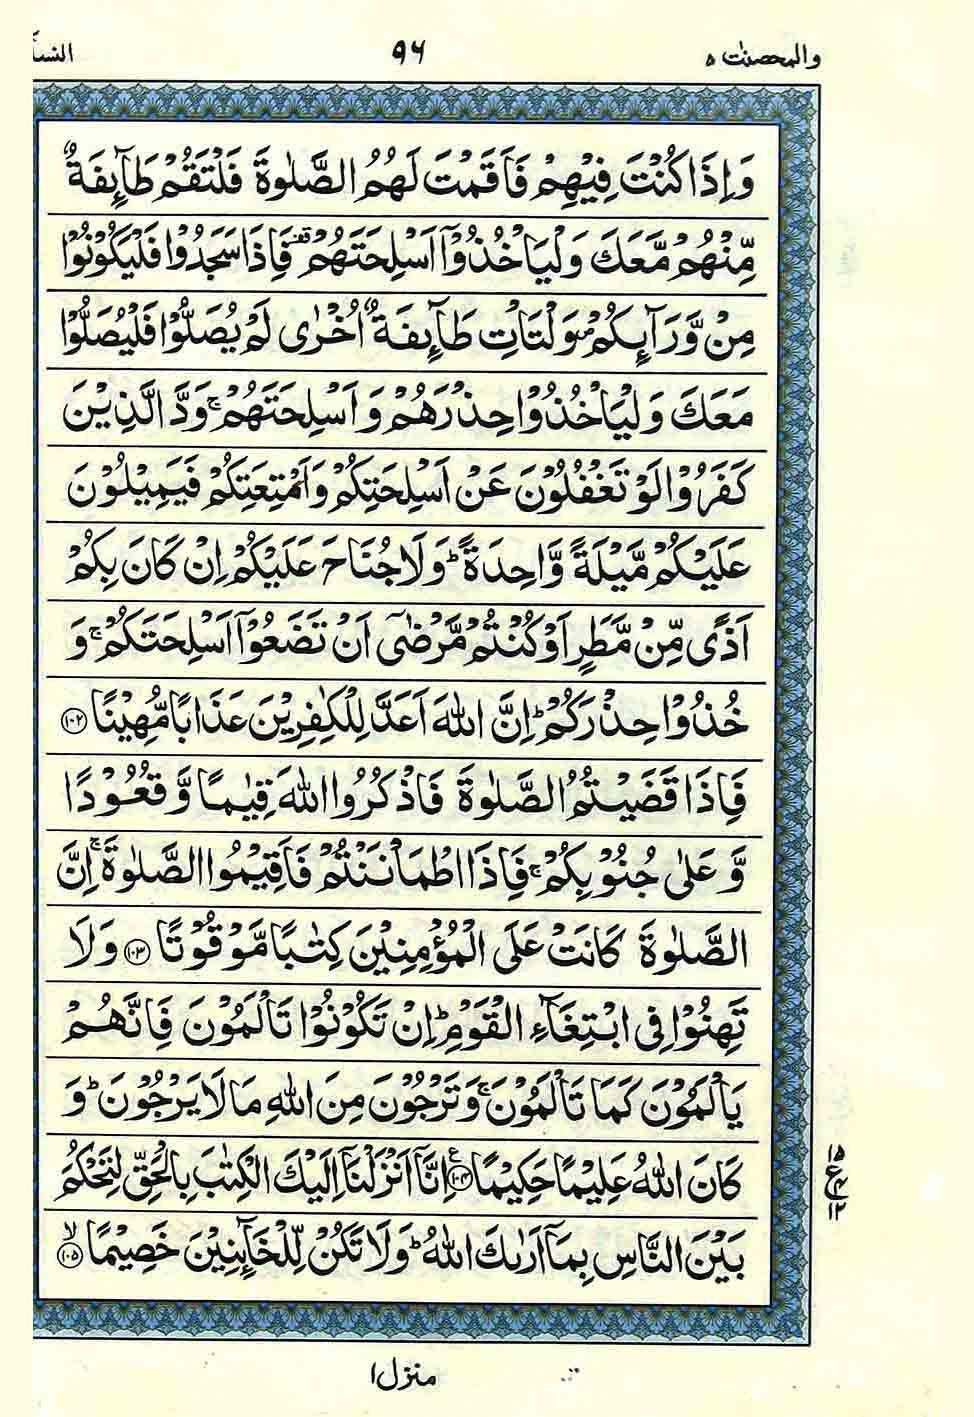 والمحصنت ۵
۹۶
النسآ
وَاِذَا كُنْتَ فِيْهِمْ فَاَقَمْتَ لَهُمُ الصَّلٰوةَ فَلْتَقُمْ طَآئِفَةٌ
مِّنْهُمْ مَّعَكَ وَلْيَاْخُذُوْٓا اَسْلِحَتَهُمْ ۫ فَاِذَا سَجَدُوْا فَلْيَكُوْنُوْا
مِنْ وَّرَآئِكُمْ ۪ وَلْتَاْتِ طَآئِفَةٌ اُخْرٰى لَمْ يُصَلُّوْا فَلْيُصَلُّوْا
مَعَكَ وَلْيَاْخُذُوْا حِذْرَهُمْ وَاَسْلِحَتَهُمْ ۚ وَدَّ الَّذِيْنَ
كَفَرُوْا لَوْ تَغْفُلُوْنَ عَنْ اَسْلِحَتِكُمْ وَاَمْتِعَتِكُمْ فَيَمِيْلُوْنَ
عَلَيْكُمْ مَّيْلَةً وَّاحِدَةً ؕ وَلَا جُنَاحَ عَلَيْكُمْ اِنْ كَانَ بِكُمْ
اَذًى مِّنْ مَّطَرٍ اَوْ كُنْتُمْ مَّرْضٰٓى اَنْ تَضَعُوْٓا اَسْلِحَتَكُمْ ۚ وَ
خُذُوْا حِذْرَكُمْ ؕ اِنَّ اللّٰهَ اَعَدَّ لِلْكٰفِرِيْنَ عَذَابًا مُّهِيْنًا ۝۱۰۲
فَاِذَا قَضَيْتُمُ الصَّلٰوةَ فَاذْكُرُوا اللّٰهَ قِيٰمًا وَّقُعُوْدًا
وَّعَلٰى جُنُوْبِكُمْ ۚ فَاِذَا اطْمَاْنَنْتُمْ فَاَقِيْمُوا الصَّلٰوةَ ۚ اِنَّ
الصَّلٰوةَ كَانَتْ عَلَى الْمُؤْمِنِيْنَ كِتٰبًا مَّوْقُوْتًا ۝۱۰۳ وَلَا
تَهِنُوْا فِى ابْتِغَآءِ الْقَوْمِ ؕ اِنْ تَكُوْنُوْا تَاْلَمُوْنَ فَاِنَّهُمْ
يَاْلَمُوْنَ كَمَا تَاْلَمُوْنَ ۚ وَتَرْجُوْنَ مِنَ اللّٰهِ مَا لَا يَرْجُوْنَ ؕ وَ
كَانَ اللّٰهُ عَلِيْمًا حَكِيْمًا ۝۱۰۴ اِنَّآ اَنْزَلْنَآ اِلَيْكَ الْكِتٰبَ بِالْحَقِّ لِتَحْكُمَ
۱۵
ع
۱۲
بَيْنَ النَّاسِ بِمَآ اَرٰىكَ اللّٰهُ ؕ وَلَا تَكُنْ لِّلْخَآئِنِيْنَ خَصِيْمًا ۝۱۰۵
منزل ۱